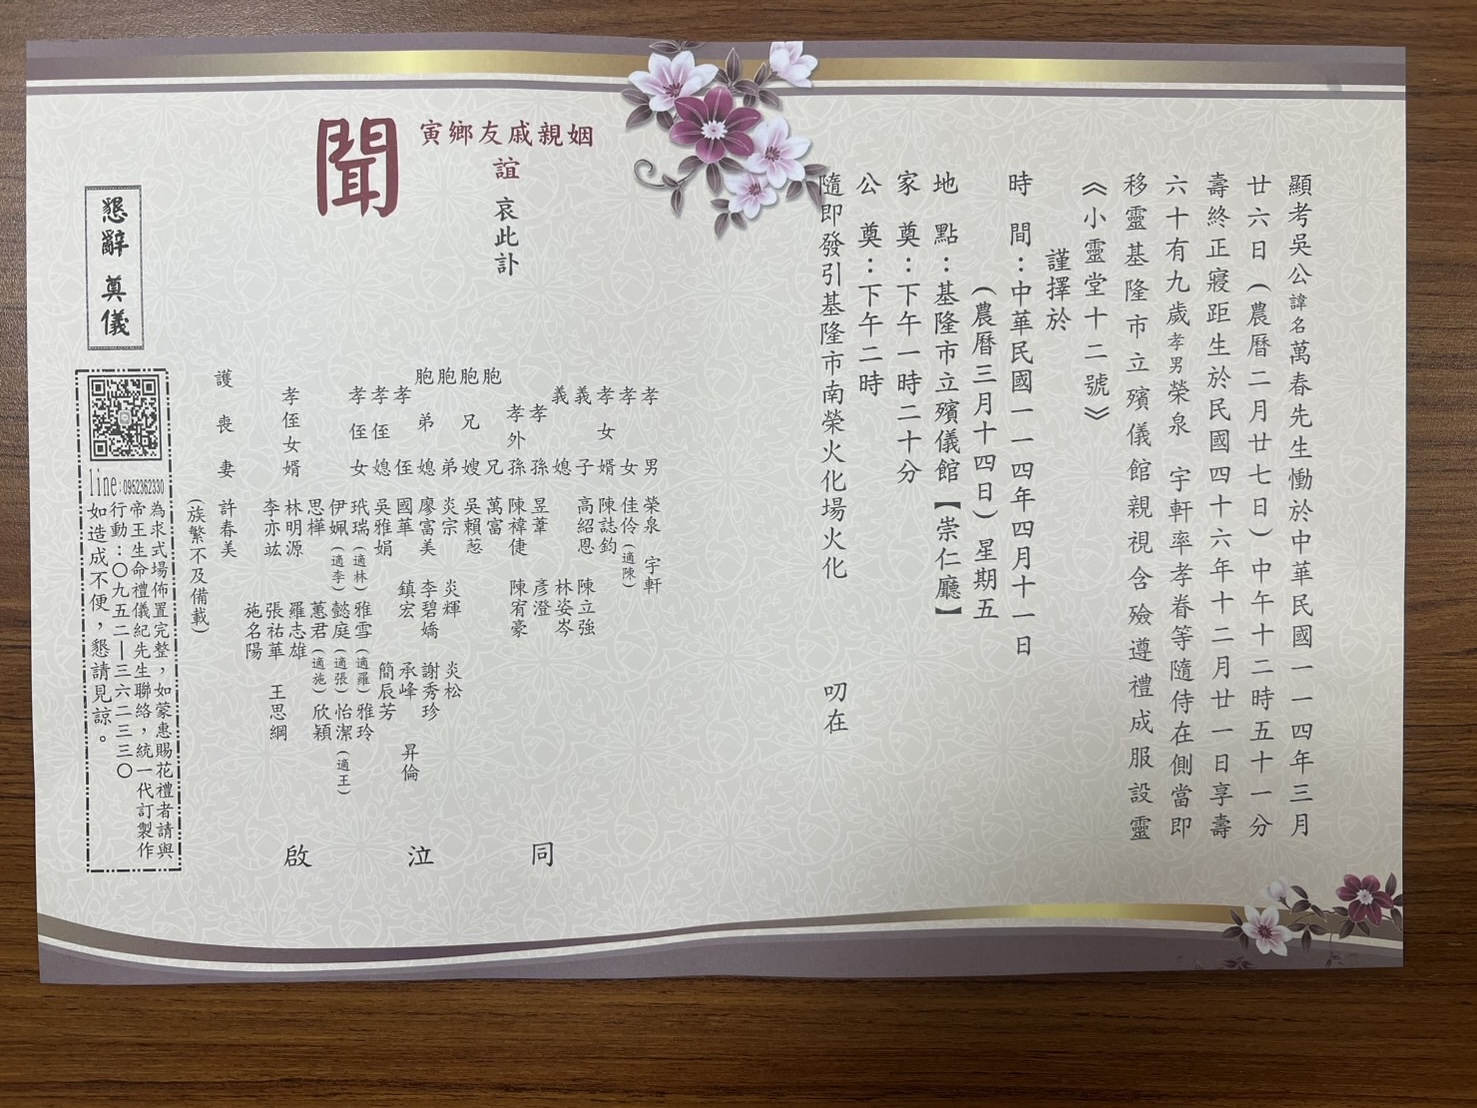 顯考吳公諱名萬春先生慟於中華民國一一四年三月
廿六日(農曆二月廿七日)中午十二時五十一分
壽終正寢距生於民國四十六年十二月廿一日享壽
六十有九歲孝男榮泉 宇軒率孝眷等隨侍在側當即
移靈基隆市立殯儀館親視含殮遵禮成服設靈
《小靈堂十二號》
謹擇於
時 間：中華民國一一四年四月十一日
(農曆三月十四日)星期五
地 點：基隆市立殯儀館【崇仁廳】
家 奠：下午一時二十分
公 奠：下午二時
隨即發引基隆市南榮火化場火化 叨在
姻親戚友鄉寅
誼 哀此訃
聞
孝男 榮泉 宇軒
孝女 佳伶(適陳)
孝女婿 陳誌鈞
義子 高紹恩 陳立強
義媳 林姿岑
孝孫 昱葦 彥澄
孝外孫 陳褘倢 陳宥豪
胞兄 萬富
胞兄嫂 吳賴蔥
胞弟 炎宗 炎輝 炎松
胞弟媳 廖富美 李碧嬌 謝秀珍
孝侄 國華 鎮宏 承峰 昇倫
孝侄媳 吳雅娟 簡辰芳
孝侄女 玳瑞(適林) 雅雪(適羅) 雅玲
伊姵(適李) 懿庭(適張) 怡潔(適王)
思樺 蕙君(適施) 欣穎
孝侄女婿 林明源 羅志雄
李亦竑 張祐華 王思綱
施名陽
護喪妻 許春美
(族繁不及備載)
同 泣 啟
懇辭 奠儀
line:0952362330
為求式場佈置完整，如蒙惠賜花禮者請與
帝王生命禮儀紀先生聯絡，統一代訂製作
行動：〇九五二—三六二三三〇
如造成不便，懇請見諒。